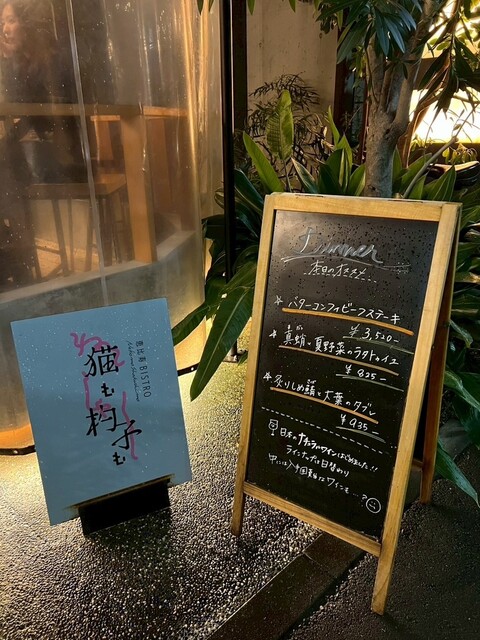 恵比寿 BISTRO
猫も杓子も
Dinner
本日のオススメ
バターコンフィビーフステーキ
¥3,520-
真蛸と夏野菜のラタトゥイユ
¥825-
炙りしめ鯖と大葉のタブレ
¥935-
日本のナチュラルワインはじめました!!
ラインナップは日替わり
中には入手困難なワインも…?